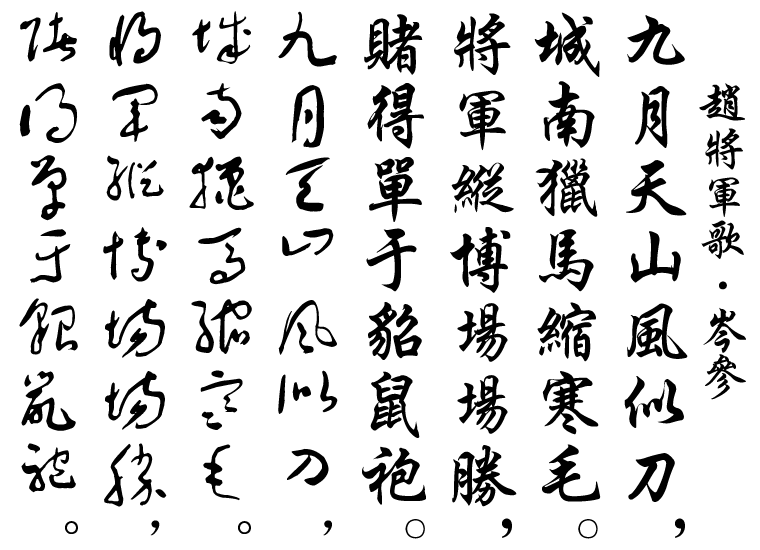 趙將軍歌·岑參
九月天山風似刀，
城南獵馬縮寒毛。
將軍縱博場場勝，
賭得單于貂鼠袍。
九月天山風似刀，
城南獵馬縮寒毛。
將軍縱博場場勝，
賭得單于貂鼠袍。